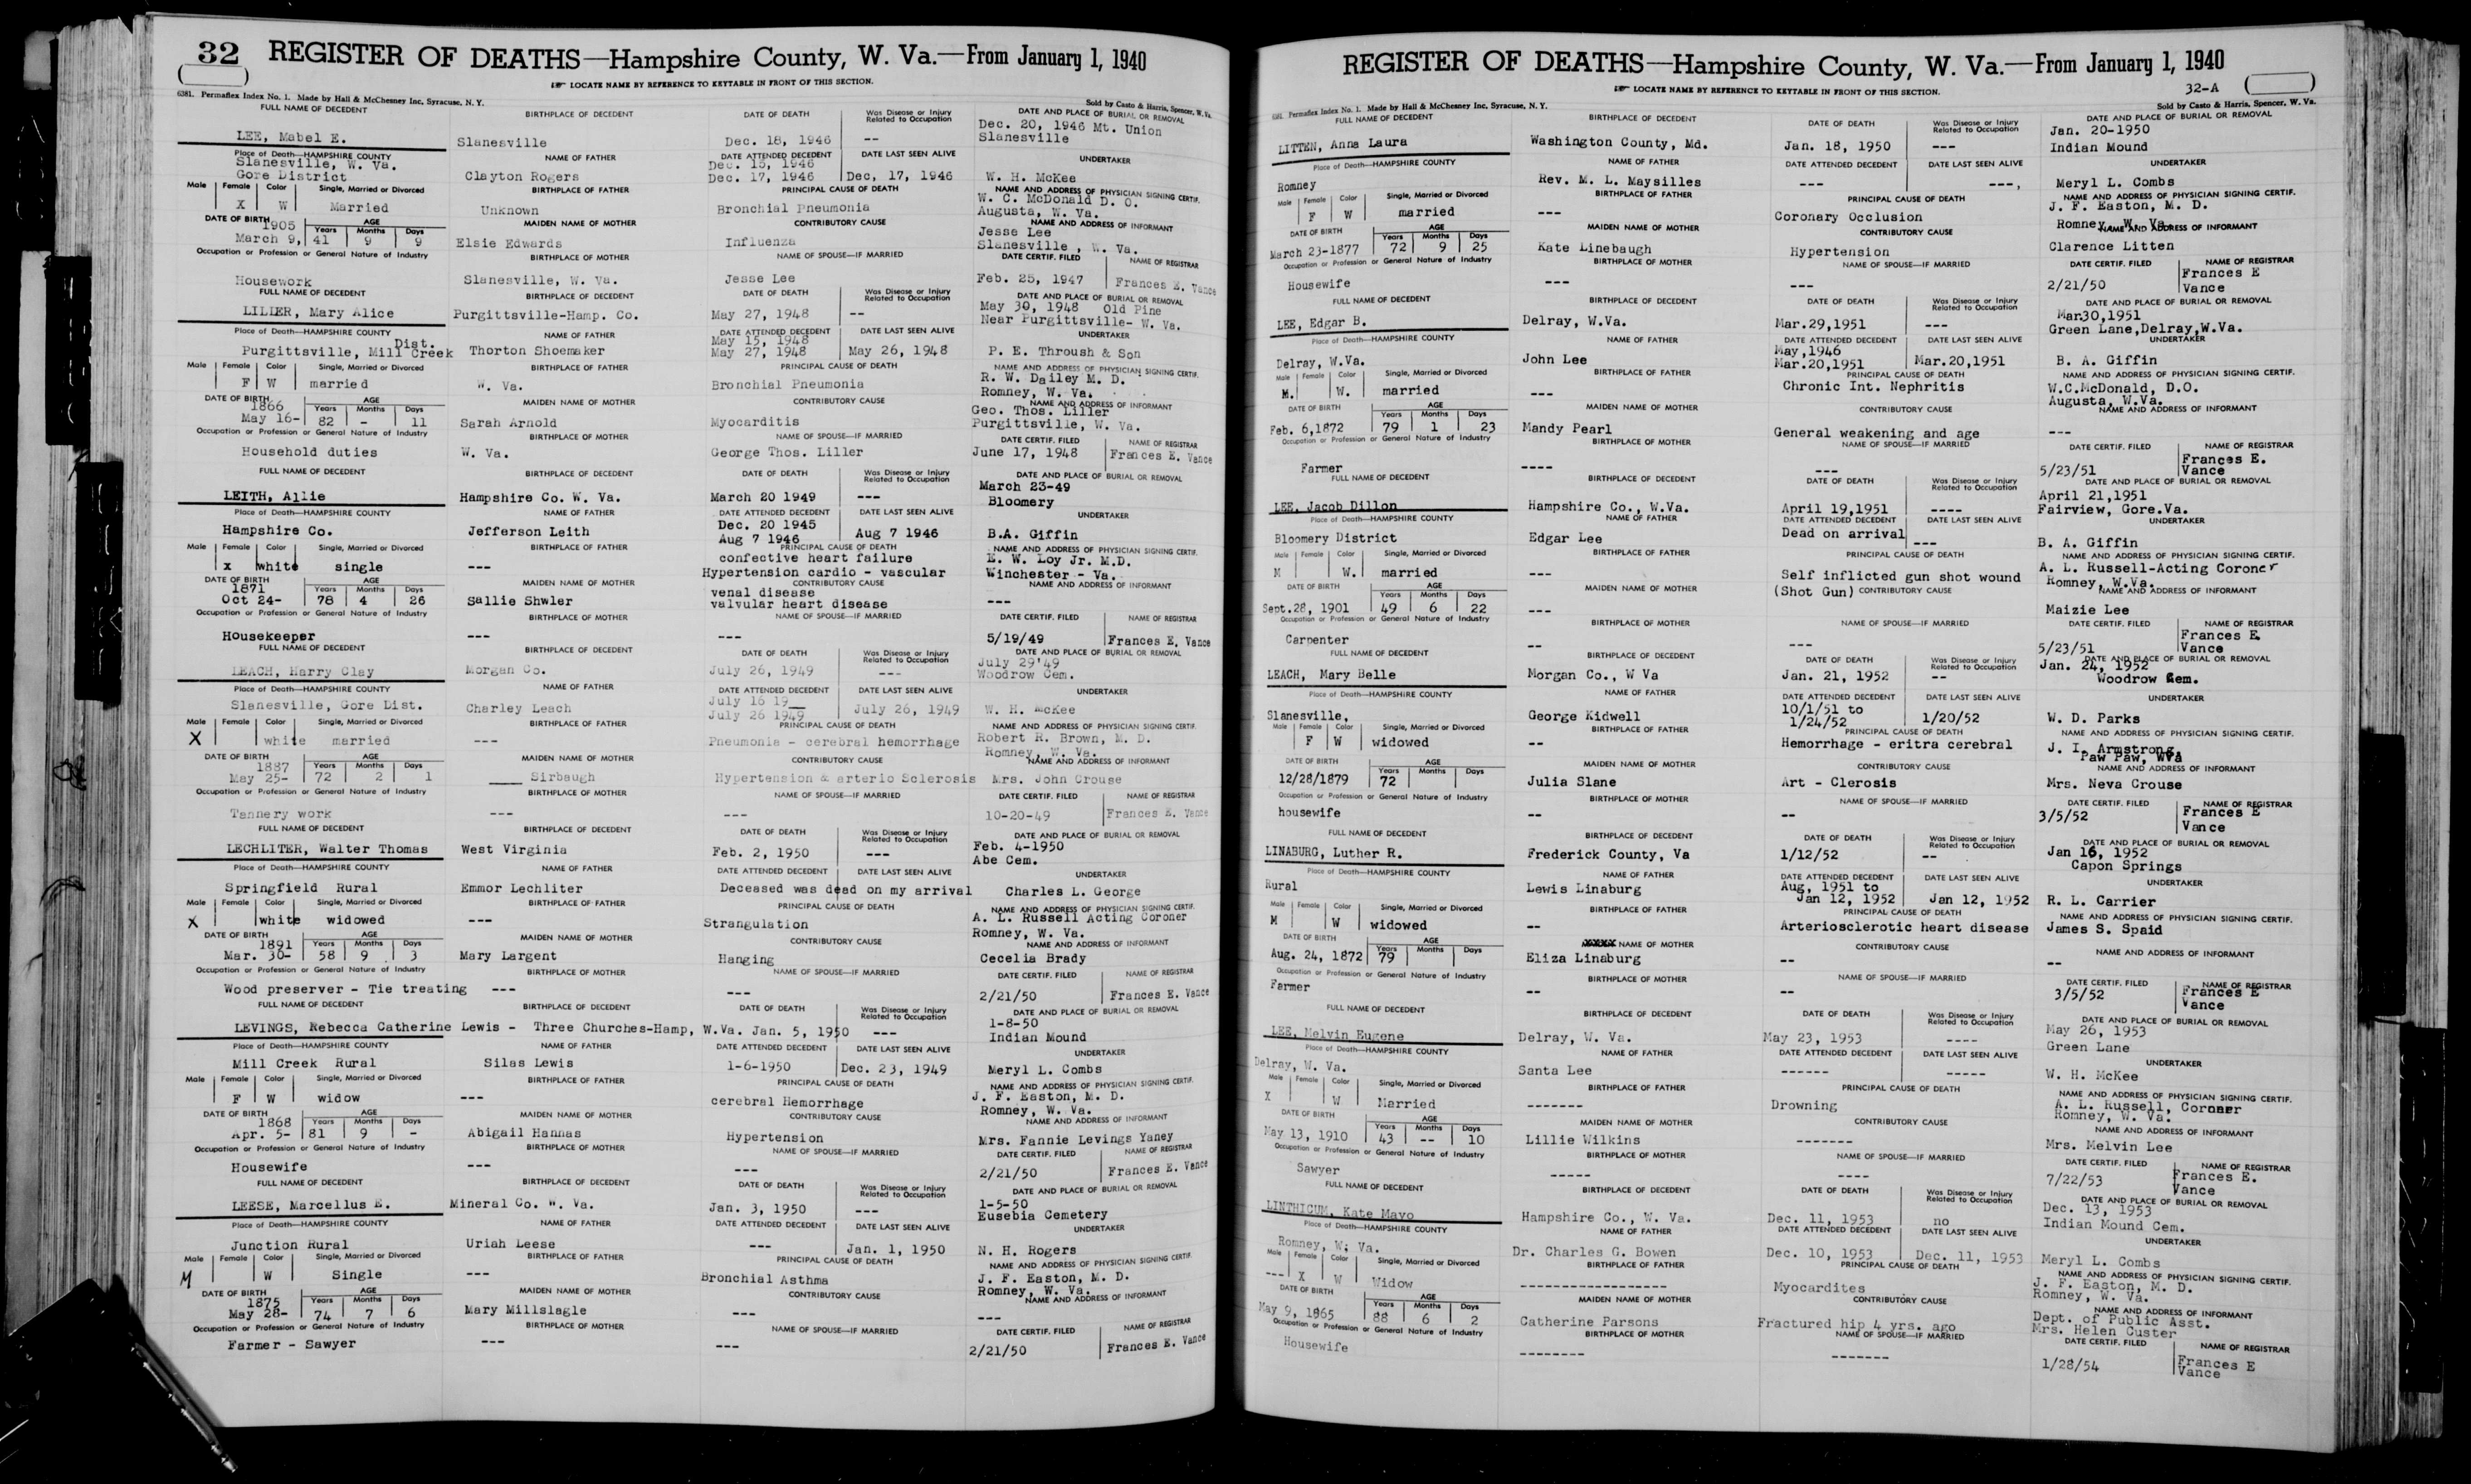 32 REGISTER OF DEATHS—Hampshire County, W. Va.—From January 1, 1940
☞ LOCATE NAME BY REFERENCE TO KEYTABLE IN FRONT OF THIS SECTION.
6381. Permaflex Index No. 1. Made by Hall & McChesney Inc, Syracuse, N. Y. Sold by Casto & Harris, Spencer, W. Va.
FULL NAME OF DECEDENT BIRTHPLACE OF DECEDENT DATE OF DEATH Was Disease or Injury Related to Occupation DATE AND PLACE OF BURIAL OR REMOVAL
LEE, Mabel E. Slanesville Dec. 18, 1946 -- Dec. 20, 1946 Mt. Union
Slanesville
Place of Death—HAMPSHIRE COUNTY NAME OF FATHER DATE ATTENDED DECEDENT DATE LAST SEEN ALIVE UNDERTAKER
Slanesville, W. Va. Dec. 15, 1946
Gore District Clayton Rogers Dec. 17, 1946 Dec, 17, 1946 W. H. McKee
Male Female Color Single, Married or Divorced BIRTHPLACE OF FATHER PRINCIPAL CAUSE OF DEATH NAME AND ADDRESS OF PHYSICIAN SIGNING CERTIF.
X W Married Unknown Bronchial Pneumonia W. C. McDonald D. O.
Augusta, W. Va.
DATE OF BIRTH AGE Years Months Days MAIDEN NAME OF MOTHER CONTRIBUTORY CAUSE NAME AND ADDRESS OF INFORMANT
1905 Jesse Lee
March 9, 41 9 9 Elsie Edwards Influenza Slanesville , W. Va.
Occupation or Profession or General Nature of Industry BIRTHPLACE OF MOTHER NAME OF SPOUSE—IF MARRIED DATE CERTIF. FILED NAME OF REGISTRAR
Housework Slanesville, W. Va. Jesse Lee Feb. 25, 1947 Frances E. Vance
FULL NAME OF DECEDENT BIRTHPLACE OF DECEDENT DATE OF DEATH Was Disease or Injury Related to Occupation DATE AND PLACE OF BURIAL OR REMOVAL
LILLER, Mary Alice Purgittsville-Hamp. Co. May 27, 1948 -- May 30, 1948 Old Pine
Near Purgittsville- W. Va.
Place of Death—HAMPSHIRE COUNTY NAME OF FATHER DATE ATTENDED DECEDENT DATE LAST SEEN ALIVE UNDERTAKER
Dist. May 15, 1948
Purgittsville, Mill Creek Thorton Shoemaker May 27, 1948 May 26, 1948 P. E. Throush & Son
Male Female Color Single, Married or Divorced BIRTHPLACE OF FATHER PRINCIPAL CAUSE OF DEATH NAME AND ADDRESS OF PHYSICIAN SIGNING CERTIF.
F W married W. Va. Bronchial Pneumonia R. W. Dailey M. D.
Romney, W. Va.
DATE OF BIRTH AGE Years Months Days MAIDEN NAME OF MOTHER CONTRIBUTORY CAUSE NAME AND ADDRESS OF INFORMANT
1866 Geo. Thos. Liller
May 16- 82 - 11 Sarah Arnold Myocarditis Purgittsville, W. Va.
Occupation or Profession or General Nature of Industry BIRTHPLACE OF MOTHER NAME OF SPOUSE—IF MARRIED DATE CERTIF. FILED NAME OF REGISTRAR
Household duties W. Va. George Thos. Liller June 17, 1948 Frances E. Vance
FULL NAME OF DECEDENT BIRTHPLACE OF DECEDENT DATE OF DEATH Was Disease or Injury Related to Occupation DATE AND PLACE OF BURIAL OR REMOVAL
LEITH, Allie Hampshire Co. W. Va. March 20 1949 --- March 23-49
Bloomery
Place of Death—HAMPSHIRE COUNTY NAME OF FATHER DATE ATTENDED DECEDENT DATE LAST SEEN ALIVE UNDERTAKER
Hampshire Co. Jefferson Leith Dec. 20 1945
Aug 7 1946 Aug 7 1946 B.A. Giffin
Male Female Color Single, Married or Divorced BIRTHPLACE OF FATHER PRINCIPAL CAUSE OF DEATH NAME AND ADDRESS OF PHYSICIAN SIGNING CERTIF.
x white single --- confective heart failure E. W. Loy Jr. M.D.
Hypertension cardio - vascular Winchester - Va.
DATE OF BIRTH AGE Years Months Days MAIDEN NAME OF MOTHER CONTRIBUTORY CAUSE NAME AND ADDRESS OF INFORMANT
1871 venal disease
Oct 24- 78 4 26 Sallie Shwler valvular heart disease ---
Occupation or Profession or General Nature of Industry BIRTHPLACE OF MOTHER NAME OF SPOUSE—IF MARRIED DATE CERTIF. FILED NAME OF REGISTRAR
Housekeeper --- --- 5/19/49 Frances E. Vance
FULL NAME OF DECEDENT BIRTHPLACE OF DECEDENT DATE OF DEATH Was Disease or Injury Related to Occupation DATE AND PLACE OF BURIAL OR REMOVAL
LEACH, Harry Clay Morgan Co. July 26, 1949 --- July 29'49
Woodrow Cem.
Place of Death—HAMPSHIRE COUNTY NAME OF FATHER DATE ATTENDED DECEDENT DATE LAST SEEN ALIVE UNDERTAKER
Slanesville, Gore Dist. Charley Leach July 16 19__
July 26 1949 July 26, 1949 W. H. McKee
Male Female Color Single, Married or Divorced BIRTHPLACE OF FATHER PRINCIPAL CAUSE OF DEATH NAME AND ADDRESS OF PHYSICIAN SIGNING CERTIF.
X white married --- Pneumonia - cerebral hemorrhage Robert R. Brown, M. D.
Romney, W. Va.
DATE OF BIRTH AGE Years Months Days MAIDEN NAME OF MOTHER CONTRIBUTORY CAUSE NAME AND ADDRESS OF INFORMANT
1887
May 25- 72 2 1 ____ Sirbaugh Hypertension & arterio Sclerosis Mrs. John Crouse
Occupation or Profession or General Nature of Industry BIRTHPLACE OF MOTHER NAME OF SPOUSE—IF MARRIED DATE CERTIF. FILED NAME OF REGISTRAR
Tannery work --- --- 10-20-49 Frances E. Vance
FULL NAME OF DECEDENT BIRTHPLACE OF DECEDENT DATE OF DEATH Was Disease or Injury Related to Occupation DATE AND PLACE OF BURIAL OR REMOVAL
LECHLITER, Walter Thomas West Virginia Feb. 2, 1950 --- Feb. 4-1950
Abe Cem.
Place of Death—HAMPSHIRE COUNTY NAME OF FATHER DATE ATTENDED DECEDENT DATE LAST SEEN ALIVE UNDERTAKER
Springfield Rural Emmor Lechliter Deceased was dead on my arrival Charles L. George
Male Female Color Single, Married or Divorced BIRTHPLACE OF FATHER PRINCIPAL CAUSE OF DEATH NAME AND ADDRESS OF PHYSICIAN SIGNING CERTIF.
X white widowed --- Strangulation A. L. Russell Acting Coroner
Romney, W. Va.
DATE OF BIRTH AGE Years Months Days MAIDEN NAME OF MOTHER CONTRIBUTORY CAUSE NAME AND ADDRESS OF INFORMANT
1891
Mar. 30- 58 9 3 Mary Largent Hanging Cecelia Brady
Occupation or Profession or General Nature of Industry BIRTHPLACE OF MOTHER NAME OF SPOUSE—IF MARRIED DATE CERTIF. FILED NAME OF REGISTRAR
Wood preserver - Tie treating --- --- 2/21/50 Frances E. Vance
FULL NAME OF DECEDENT BIRTHPLACE OF DECEDENT DATE OF DEATH Was Disease or Injury Related to Occupation DATE AND PLACE OF BURIAL OR REMOVAL
LEVINGS, Rebecca Catherine Lewis - Three Churches-Hamp, W.Va. Jan. 5, 1950 --- 1-8-50
Indian Mound
Place of Death—HAMPSHIRE COUNTY NAME OF FATHER DATE ATTENDED DECEDENT DATE LAST SEEN ALIVE UNDERTAKER
Mill Creek Rural Silas Lewis 1-6-1950 Dec. 23, 1949 Meryl L. Combs
Male Female Color Single, Married or Divorced BIRTHPLACE OF FATHER PRINCIPAL CAUSE OF DEATH NAME AND ADDRESS OF PHYSICIAN SIGNING CERTIF.
F W widow --- cerebral Hemorrhage J. F. Easton, M. D.
Romney, W. Va.
DATE OF BIRTH AGE Years Months Days MAIDEN NAME OF MOTHER CONTRIBUTORY CAUSE NAME AND ADDRESS OF INFORMANT
1868
Apr. 5- 81 9 - Abigail Hannas Hypertension Mrs. Fannie Levings Yaney
Occupation or Profession or General Nature of Industry BIRTHPLACE OF MOTHER NAME OF SPOUSE—IF MARRIED DATE CERTIF. FILED NAME OF REGISTRAR
Housewife --- --- 2/21/50 Frances E. Vance
FULL NAME OF DECEDENT BIRTHPLACE OF DECEDENT DATE OF DEATH Was Disease or Injury Related to Occupation DATE AND PLACE OF BURIAL OR REMOVAL
LEESE, Marcellus E. Mineral Co. W. Va. Jan. 3, 1950 --- 1-5-50
Eusebia Cemetery
Place of Death—HAMPSHIRE COUNTY NAME OF FATHER DATE ATTENDED DECEDENT DATE LAST SEEN ALIVE UNDERTAKER
Junction Rural Uriah Leese --- Jan. 1, 1950 N. H. Rogers
Male Female Color Single, Married or Divorced BIRTHPLACE OF FATHER PRINCIPAL CAUSE OF DEATH NAME AND ADDRESS OF PHYSICIAN SIGNING CERTIF.
M W Single --- Bronchial Asthma J. F. Easton, M. D.
Romney, W. Va.
DATE OF BIRTH AGE Years Months Days MAIDEN NAME OF MOTHER CONTRIBUTORY CAUSE NAME AND ADDRESS OF INFORMANT
1875
May 28- 74 7 6 Mary Millslagle --- ---
Occupation or Profession or General Nature of Industry BIRTHPLACE OF MOTHER NAME OF SPOUSE—IF MARRIED DATE CERTIF. FILED NAME OF REGISTRAR
Farmer - Sawyer --- --- 2/21/50 Frances E. Vance
REGISTER OF DEATHS—Hampshire County, W. Va.—From January 1, 1940
☞ LOCATE NAME BY REFERENCE TO KEYTABLE IN FRONT OF THIS SECTION. 32-A
6381. Permaflex Index No. 1. Made by Hall & McChesney Inc, Syracuse, N. Y. Sold by Casto & Harris, Spencer, W. Va.
FULL NAME OF DECEDENT BIRTHPLACE OF DECEDENT DATE OF DEATH Was Disease or Injury Related to Occupation DATE AND PLACE OF BURIAL OR REMOVAL
LITTEN, Anna Laura Washington County, Md. Jan. 18, 1950 --- Jan. 20-1950
Indian Mound
Place of Death—HAMPSHIRE COUNTY NAME OF FATHER DATE ATTENDED DECEDENT DATE LAST SEEN ALIVE UNDERTAKER
Romney Rev. M. L. Maysilles --- ---, Meryl L. Combs
Male Female Color Single, Married or Divorced BIRTHPLACE OF FATHER PRINCIPAL CAUSE OF DEATH NAME AND ADDRESS OF PHYSICIAN SIGNING CERTIF.
F W married --- Coronary Occlusion J. F. Easton, M. D.
Romney, W. Va.
DATE OF BIRTH AGE Years Months Days MAIDEN NAME OF MOTHER CONTRIBUTORY CAUSE NAME AND ADDRESS OF INFORMANT
March 23-1877 72 9 25 Kate Linebaugh Hypertension Clarence Litten
Occupation or Profession or General Nature of Industry BIRTHPLACE OF MOTHER NAME OF SPOUSE—IF MARRIED DATE CERTIF. FILED NAME OF REGISTRAR
Housewife --- --- 2/21/50 Frances E
Vance
FULL NAME OF DECEDENT BIRTHPLACE OF DECEDENT DATE OF DEATH Was Disease or Injury Related to Occupation DATE AND PLACE OF BURIAL OR REMOVAL
LEE, Edgar B. Delray, W.Va. Mar.29,1951 --- Mar30,1951
Green Lane,Delray,W.Va.
Place of Death—HAMPSHIRE COUNTY NAME OF FATHER DATE ATTENDED DECEDENT DATE LAST SEEN ALIVE UNDERTAKER
Delray, W.Va. John Lee May,1946
Mar.20,1951 Mar.20,1951 B. A. Giffin
Male Female Color Single, Married or Divorced BIRTHPLACE OF FATHER PRINCIPAL CAUSE OF DEATH NAME AND ADDRESS OF PHYSICIAN SIGNING CERTIF.
M. W. married --- Chronic Int. Nephritis W.C.McDonald, D.O.
Augusta, W.Va.
DATE OF BIRTH AGE Years Months Days MAIDEN NAME OF MOTHER CONTRIBUTORY CAUSE NAME AND ADDRESS OF INFORMANT
Feb. 6,1872 79 1 23 Mandy Pearl General weakening and age ---
Occupation or Profession or General Nature of Industry BIRTHPLACE OF MOTHER NAME OF SPOUSE—IF MARRIED DATE CERTIF. FILED NAME OF REGISTRAR
Farmer ---- --- 5/23/51 Frances E.
Vance
FULL NAME OF DECEDENT BIRTHPLACE OF DECEDENT DATE OF DEATH Was Disease or Injury Related to Occupation DATE AND PLACE OF BURIAL OR REMOVAL
LEE, Jacob Dillon Hampshire Co., W.Va. April 19,1951 ---- April 21,1951
Fairview, Gore.Va.
Place of Death—HAMPSHIRE COUNTY NAME OF FATHER DATE ATTENDED DECEDENT DATE LAST SEEN ALIVE UNDERTAKER
Bloomery District Edgar Lee Dead on arrival --- B. A. Giffin
Male Female Color Single, Married or Divorced BIRTHPLACE OF FATHER PRINCIPAL CAUSE OF DEATH NAME AND ADDRESS OF PHYSICIAN SIGNING CERTIF.
M W. married --- Self inflicted gun shot wound A. L. Russell-Acting Coroner
(Shot Gun) Romney, W.Va.
DATE OF BIRTH AGE Years Months Days MAIDEN NAME OF MOTHER CONTRIBUTORY CAUSE NAME AND ADDRESS OF INFORMANT
Sept.28, 1901 49 6 22 --- Maizie Lee
Occupation or Profession or General Nature of Industry BIRTHPLACE OF MOTHER NAME OF SPOUSE—IF MARRIED DATE CERTIF. FILED NAME OF REGISTRAR
Carpenter -- --- 5/23/51 Frances E.
Vance
FULL NAME OF DECEDENT BIRTHPLACE OF DECEDENT DATE OF DEATH Was Disease or Injury Related to Occupation DATE AND PLACE OF BURIAL OR REMOVAL
LEACH, Mary Belle Morgan Co., W Va Jan. 21, 1952 -- Jan. 24, 1952
Woodrow Cem.
Place of Death—HAMPSHIRE COUNTY NAME OF FATHER DATE ATTENDED DECEDENT DATE LAST SEEN ALIVE UNDERTAKER
Slanesville, George Kidwell 10/1/51 to
1/24/52 1/20/52 W. D. Parks
Male Female Color Single, Married or Divorced BIRTHPLACE OF FATHER PRINCIPAL CAUSE OF DEATH NAME AND ADDRESS OF PHYSICIAN SIGNING CERTIF.
F W widowed -- Hemorrhage - eritra cerebral J. I. Armstrong,
Paw Paw, WVa
DATE OF BIRTH AGE Years Months Days MAIDEN NAME OF MOTHER CONTRIBUTORY CAUSE NAME AND ADDRESS OF INFORMANT
12/28/1879 72 Julia Slane Art - Clerosis Mrs. Neva Crouse
Occupation or Profession or General Nature of Industry BIRTHPLACE OF MOTHER NAME OF SPOUSE—IF MARRIED DATE CERTIF. FILED NAME OF REGISTRAR
housewife -- -- 3/5/52 Frances E
Vance
FULL NAME OF DECEDENT BIRTHPLACE OF DECEDENT DATE OF DEATH Was Disease or Injury Related to Occupation DATE AND PLACE OF BURIAL OR REMOVAL
LINABURG, Luther R. Frederick County, Va 1/12/52 -- Jan 16, 1952
Capon Springs
Place of Death—HAMPSHIRE COUNTY NAME OF FATHER DATE ATTENDED DECEDENT DATE LAST SEEN ALIVE UNDERTAKER
Rural Lewis Linaburg Aug, 1951 to
Jan 12, 1952 Jan 12, 1952 R. L. Carrier
Male Female Color Single, Married or Divorced BIRTHPLACE OF FATHER PRINCIPAL CAUSE OF DEATH NAME AND ADDRESS OF PHYSICIAN SIGNING CERTIF.
M W widowed -- Arteriosclerotic heart disease James S. Spaid
DATE OF BIRTH AGE Years Months Days xxxx NAME OF MOTHER CONTRIBUTORY CAUSE NAME AND ADDRESS OF INFORMANT
Aug. 24, 1872 79 Eliza Linaburg -- --
Occupation or Profession or General Nature of Industry BIRTHPLACE OF MOTHER NAME OF SPOUSE—IF MARRIED DATE CERTIF. FILED NAME OF REGISTRAR
Farmer -- -- 3/5/52 Frances E
Vance
FULL NAME OF DECEDENT BIRTHPLACE OF DECEDENT DATE OF DEATH Was Disease or Injury Related to Occupation DATE AND PLACE OF BURIAL OR REMOVAL
LEE, Melvin Eugene Delray, W. Va. May 23, 1953 ---- May 26, 1953
Green Lane
Place of Death—HAMPSHIRE COUNTY NAME OF FATHER DATE ATTENDED DECEDENT DATE LAST SEEN ALIVE UNDERTAKER
Delray, W. Va. Santa Lee ------ ----- W. H. McKee
Male Female Color Single, Married or Divorced BIRTHPLACE OF FATHER PRINCIPAL CAUSE OF DEATH NAME AND ADDRESS OF PHYSICIAN SIGNING CERTIF.
X W Married ------- Drowning A. L. Russell, Coroner
Romney, W. Va.
DATE OF BIRTH AGE Years Months Days MAIDEN NAME OF MOTHER CONTRIBUTORY CAUSE NAME AND ADDRESS OF INFORMANT
May 13, 1910 43 -- 10 Lillie Wilkins ------- Mrs. Melvin Lee
Occupation or Profession or General Nature of Industry BIRTHPLACE OF MOTHER NAME OF SPOUSE—IF MARRIED DATE CERTIF. FILED NAME OF REGISTRAR
Sawyer ----- ---- 7/22/53 Frances E.
Vance
FULL NAME OF DECEDENT BIRTHPLACE OF DECEDENT DATE OF DEATH Was Disease or Injury Related to Occupation DATE AND PLACE OF BURIAL OR REMOVAL
LINTHICUM, Kate Mayo Hampshire Co., W. Va. Dec. 11, 1953 no Dec. 13, 1953
Indian Mound Cem.
Place of Death—HAMPSHIRE COUNTY NAME OF FATHER DATE ATTENDED DECEDENT DATE LAST SEEN ALIVE UNDERTAKER
Romney, W. Va. Dr. Charles G. Bowen Dec. 10, 1953 Dec. 11, 1953 Meryl L. Combs
Male Female Color Single, Married or Divorced BIRTHPLACE OF FATHER PRINCIPAL CAUSE OF DEATH NAME AND ADDRESS OF PHYSICIAN SIGNING CERTIF.
--- X W Widow ----------------- Myocardites J. F. Easton, M. D.
Romney, W. Va.
DATE OF BIRTH AGE Years Months Days MAIDEN NAME OF MOTHER CONTRIBUTORY CAUSE NAME AND ADDRESS OF INFORMANT
May 9, 1865 88 6 2 Catherine Parsons Fractured hip 4 yrs. ago Dept. of Public Asst.
Mrs. Helen Custer
Occupation or Profession or General Nature of Industry BIRTHPLACE OF MOTHER NAME OF SPOUSE—IF MARRIED DATE CERTIF. FILED NAME OF REGISTRAR
Housewife -------- ------- 1/28/54 Frances E
Vance